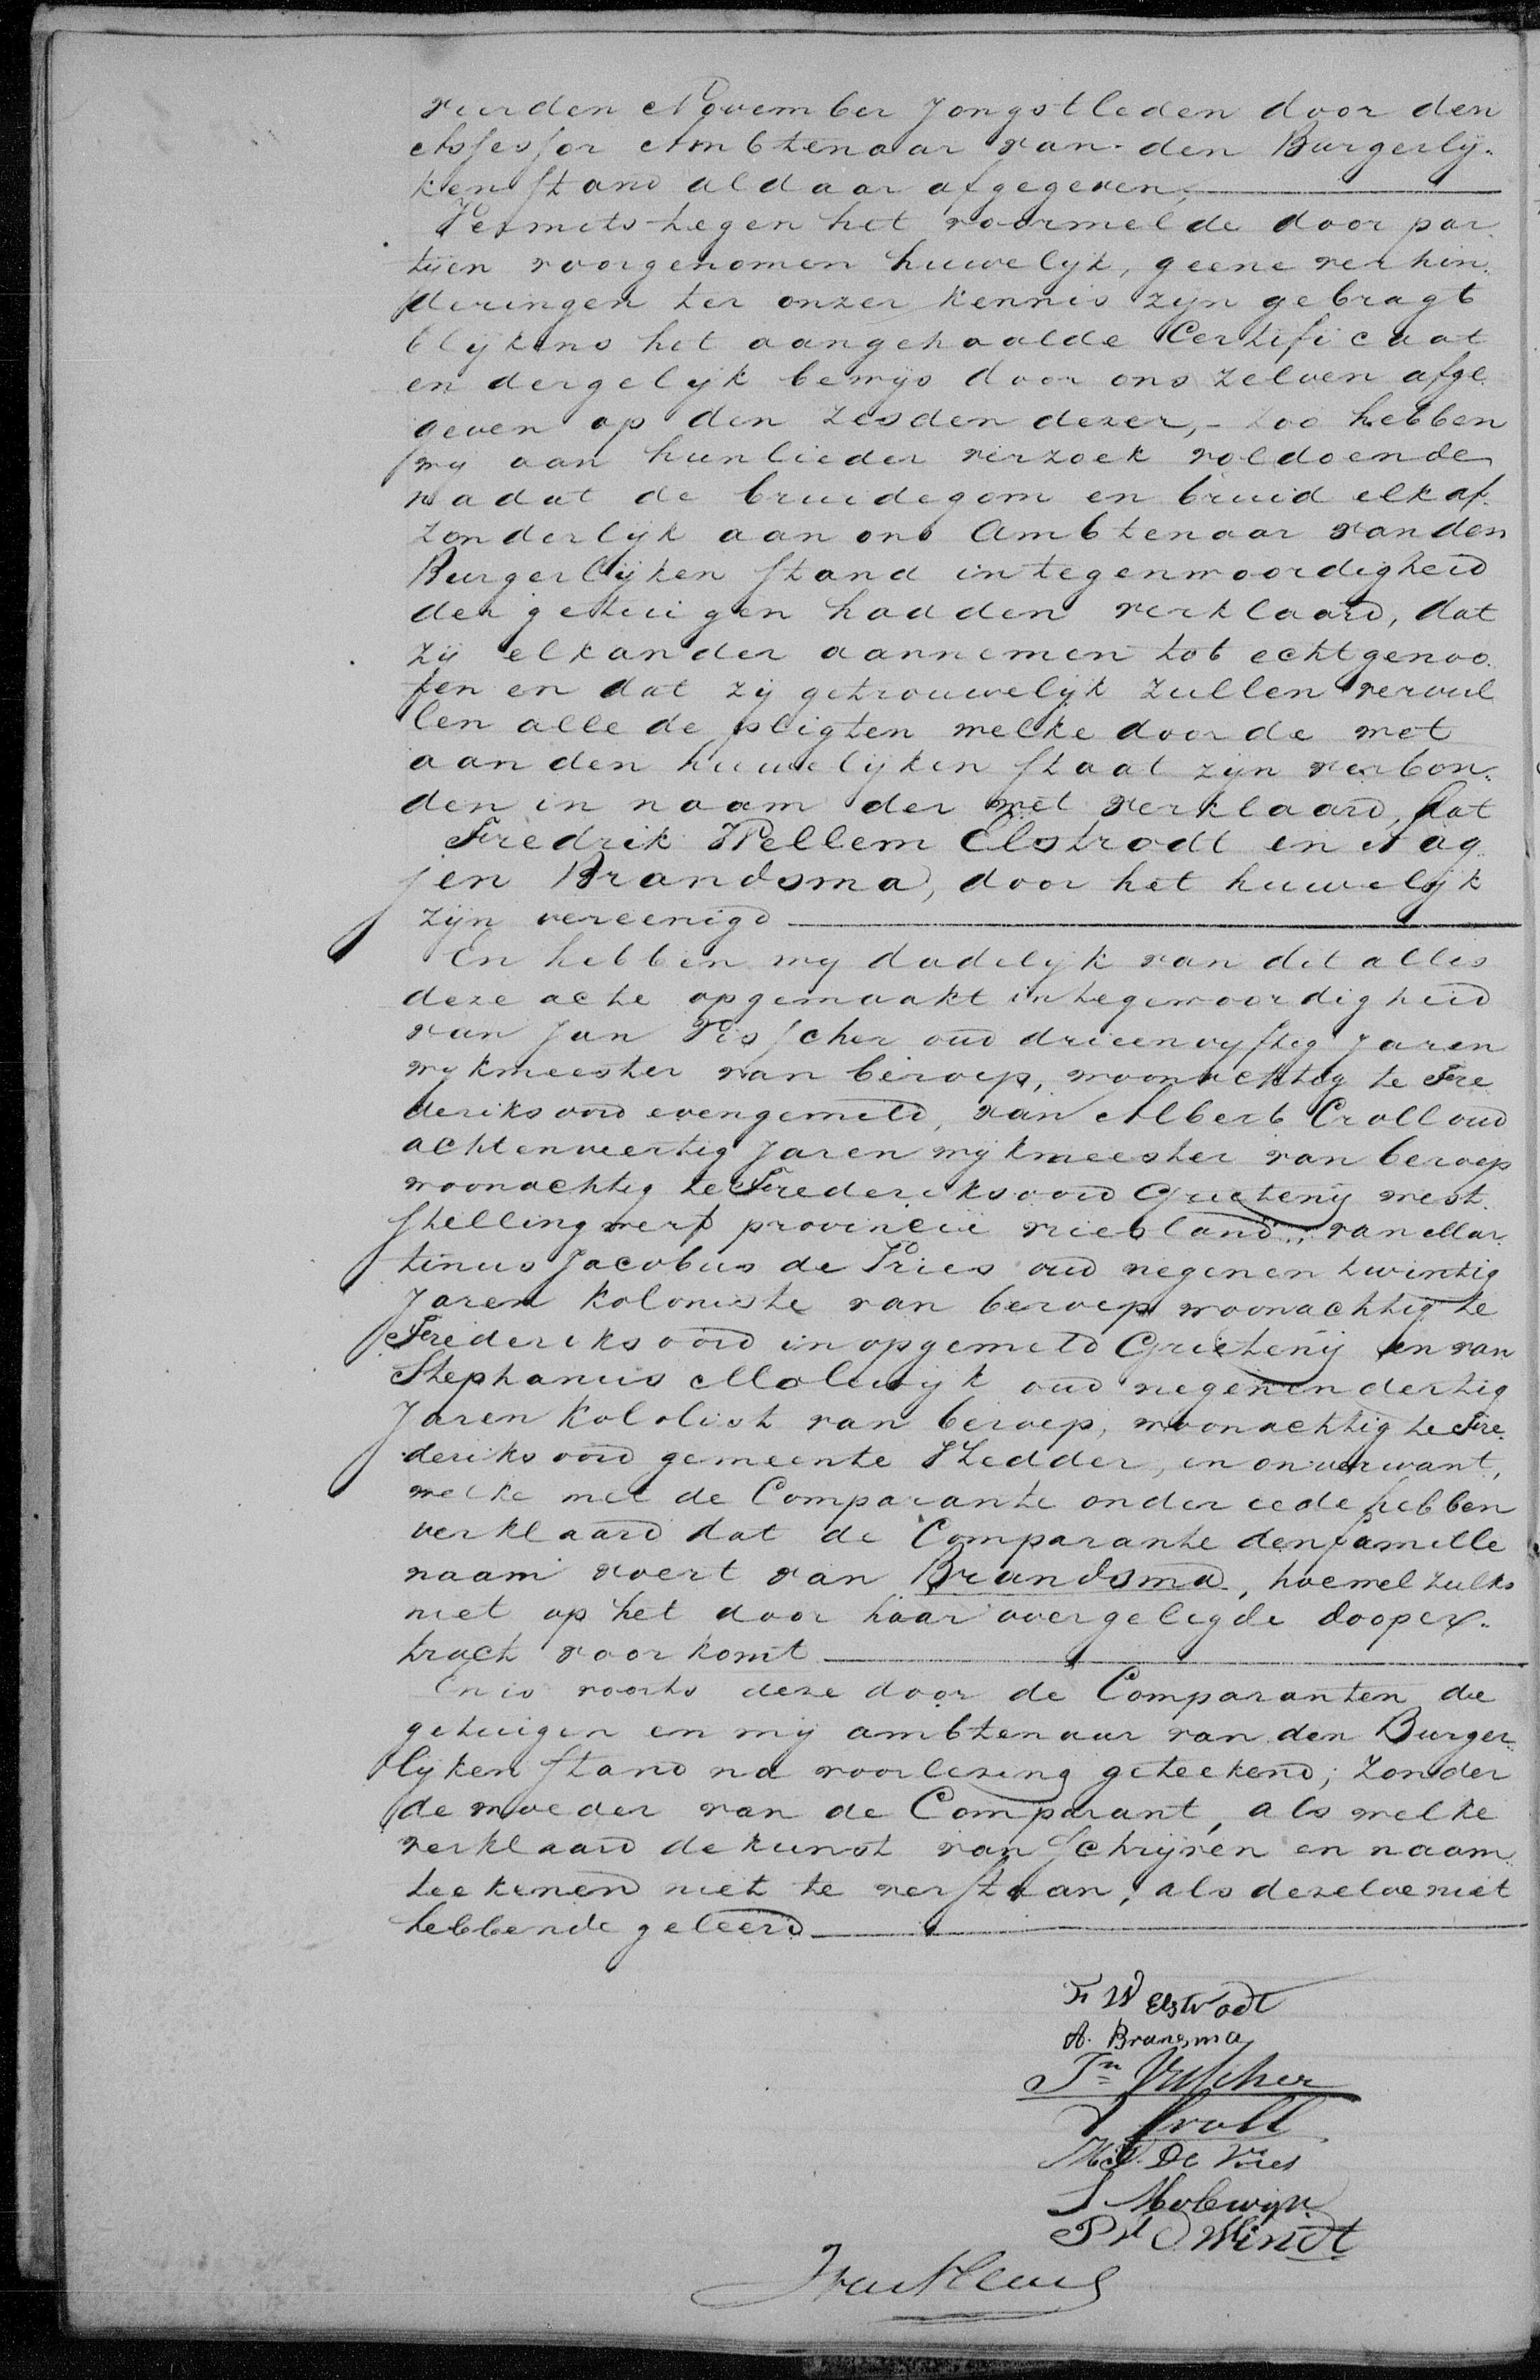 vierden November jongstleden door den
Assessor Ambtenaar van den Burgerlij-
ken stand aldaar afgegeven,
Vermits tegen het voormelde door par-
tijen voorgenomen huwelijk, geene verhin-
deringen ter onzer kennis zijn gebragt
blijkens het aangehaalde Certificaat
en dergelijk bewijs door ons zelven afge-
geven op den zesden dezer, - zoo hebben
wij aan hunlieder verzoek voldoende
nadat de bruidegom en bruid elk af-
zonderlijk aan ons Ambtenaar van den
Burgerlijken stand in tegenwoordigheid
der getuigen hadden verklaard, dat
zij elkander aannemen tot echtgenoo-
ten en dat zij getrouwelijk zullen vervul
len alle de pligten welke door de wet
aan den huwelijken staat zijn verbon-
den in naam der wet verklaard, dat
Fredrik Wellem Elstrodt en Aag-
jen Brandsma, door het huwelijk
zijn vereenigd
En hebben wij dadelijk van dit alles
deze acte opgemaakt in tegewoordigheid
van Jan Visscher oud drieenvyftig jaren
wijkmeester van beroep, woonachtig te Fre
deriksoord evengemeld, van Albert Croll oud
achtenveertig jaren wijkmeester van beroep
woonachtig te Frederiksoord Grietenij west-
stellingwerf provincie vriesland, van Mar-
tinus Jacobus de Vries oud negenentwintig
jaren koloniste van beroep woonachtig te
Frederiksoord in opgemeld Grietenij en van
Stephanus Molewijk oud negenendertig
jaren kololist van beroep, woonachtig te Fre-
deriksoord gemeente Vledder, en onverwant,
welke met de Comparante onder eede hebben
verklaard dat de Comparante den familie
naam voert van Brandsma, hoewel zulks
niet op het door haar overgelegde doopex-
tract voorkomt
En is voorts deze door de Comparanten de
getuigen en mij ambtenaar van den Burger-
lijken stand na voorlezing geteekend; zonder
de moeder van de Comparant, als welke
verklaard de kunst van schrijven en naam
teekenend niet te verstaan, als dezelve niet
hebbende geleerd
F W Elstrodt
A. Bransma
Jn Visscher
A Croll
M. J. De Vries
S Molewijk